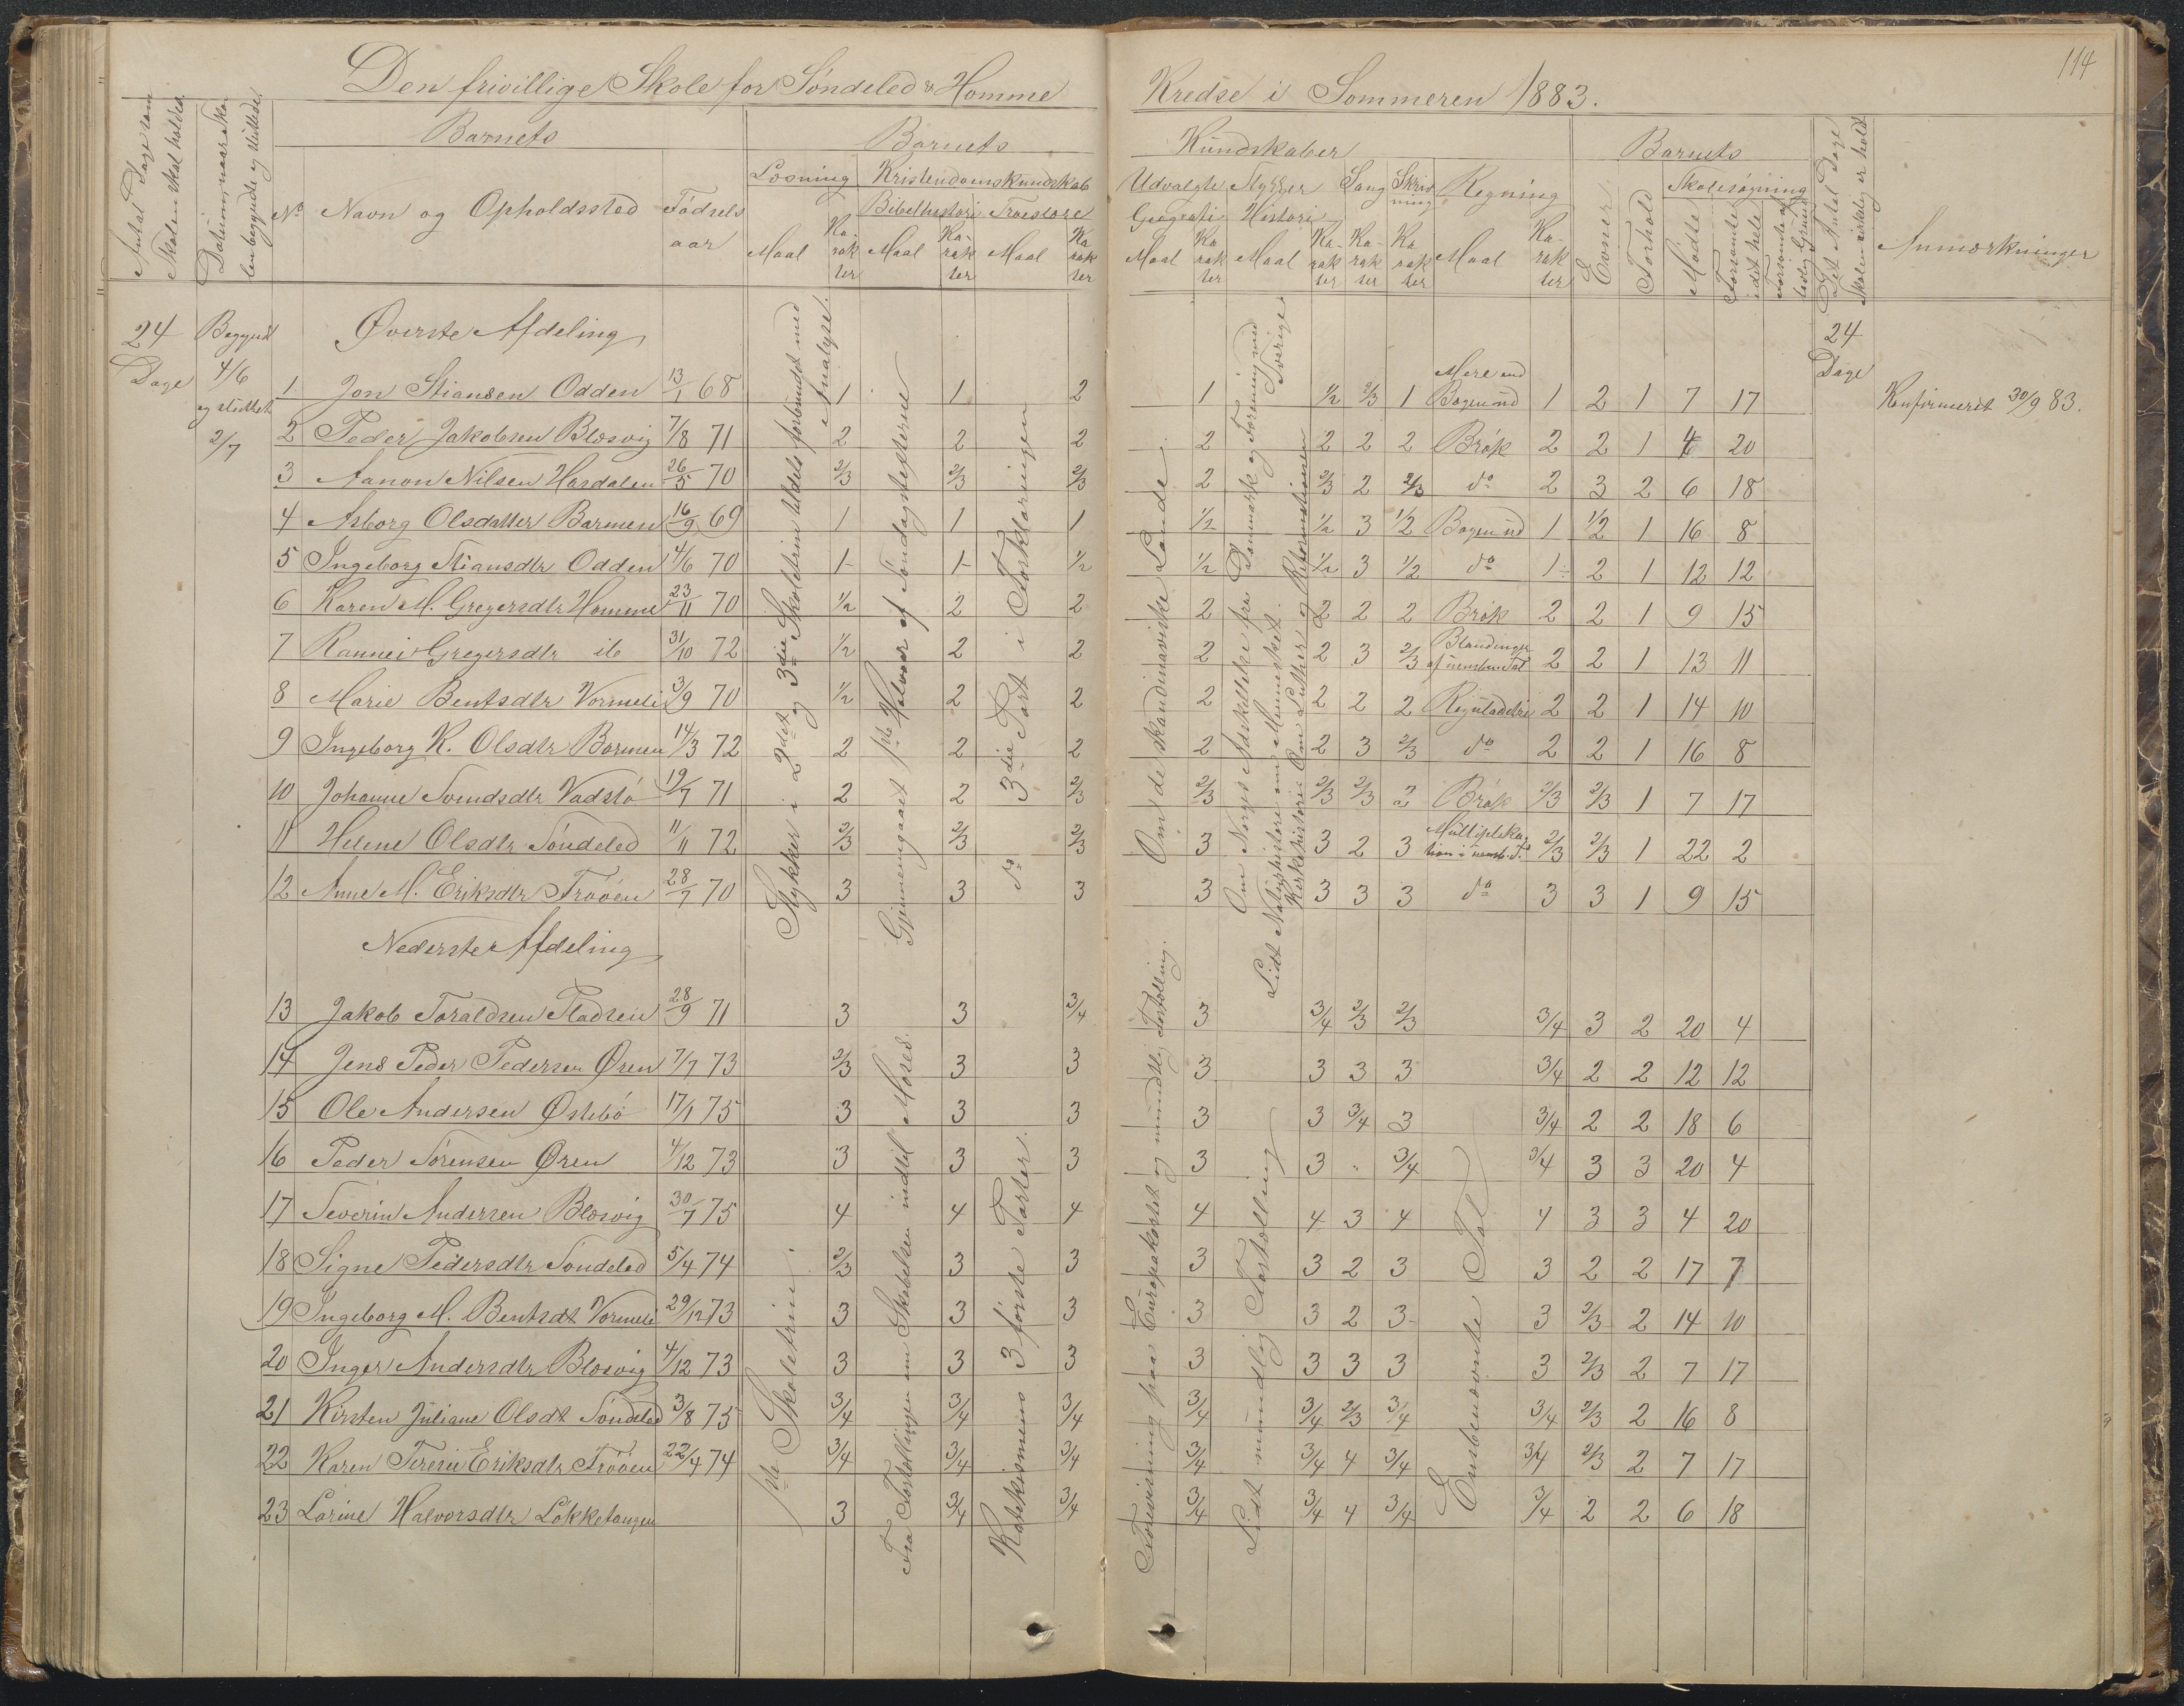 114
Den frivillige Skole for Søndeled & Homme Kredse i Sommeren 1883.
Antal Dage som Skolen skal holdes.
Datum, naar Skolen begyndte og sluttede.
Barnets
No
Navn og Opholdssted
Fødselsaar
Barnets Kundskaber
Læsning
Maal
Karakter
Kristendomskundskab
Bibelhistorie
Maal
Karakter
Troeslære
Maal
Karakter
Udvalgte Stykker
Geografi
Maal
Karakter
Histori
Maal
Karakter
Sang
Karakter
Skrivning
Karakter
Regning
Maal
Karakter
Barnets
Evner
Forhold
Skolesøgning
Mødte
Forsømte i det hele
Forsømte af lovlig Grund
Det Antal Dage Skolen virkelig er holdt
Anmærkninger
24 Dage
Begyndt 4/6 og sluttet 2/7
24 Dage
Øverste Afdeling
1 Jon Stiansen Odden 13/1 68 1 1 2 1 1/2 2/3 1 Mere end Bogen ud 1 2 1 7 17 Konfirmeret 30/9 83.
2 Peder Jakobsen Blæsvig 7/8 71 2 2 2 2 2 2 2 Brøk 2 2 1 4 20
3 Aanon Nilsen Hasdalen 26/5 70 2/3 2/3 2/3 2 2/3 2 2/3 do 2 3 2 6 18
4 Asborg Olsdatter Barmen 16/9 69 1 1 1 1/2 1/2 3 1/2 Bogen ud 1 1/2 1 16 8
5 Ingeborg Stiansdtr Odden 4/6 70 1- 1- 1/2 1/2 1/2 3 1/2 do 1- 2 1 12 12
6 Karen M. Gregersdtr Homme 23/11 70 1/2 2 2 2 2 2 2 Brøk 2 2 1 9 15
7 Rannei Gregersdtr ib 31/10 72 1/2 2 2 2 2 3 2/3 Blandinger af uensben. Tal 2 2 1 13 11
8 Marie Bentsdtr Vormeli 3/9 70 1/2 2 2 2 2 2 2 Reguladetri 2 2 1 14 10
9 Ingeborg K. Olsdtr Barmen 14/3 72 2 2 2 2 2 3 2/3 do 2 2 1 16 8
10 Johanne Svendsdtr Vadstø 19/7 71 2 2 2/3 2/3 2/3 2/3 2 Brøk 2/3 2/3 1 7 17
11 Helene Olsdtr Søndeled 11/11 72 2/3 2/3 2/3 3 3 2 3 Multiplikation i uensb. T. 2/3 2/3 1 22 2
12 Anne M. Eriksdtr Trøoen 28/7 70 3 3 3 3 3 3 3 do 3 3 1 9 15
Stykker i 2det og 3die Skoletrin tildels forbundet med Analyse.
Gjennemgaaet 1ste Halvaar af Søndagsteksterne
3die Part i Forklaringen
do
Om de skandinaviske Lande.
Om Norges Adskillelse fra Danmark og Forening med Sverige
Lidt Naturhistorie om Mennesket.
Kirkehistorie: Om Luther og Reformationen
Nederste Afdeling
13 Jakob Toraldsen Pladsen 28/9 71 3 3 3/4 3 3/4 2/3 2/3 3/4 3 2 20 4
14 Jens Peder Pedersen Øren 7/7 73 2/3 3 3 3 3 3 3 3/4 2 2 12 12
15 Ole Andersen Østebø 17/1 75 3 3 3 3 3 3/4 3 3/4 2 2 18 6
16 Peder Sørensen Øren 4/12 73 3 3 3 3 3 " 3/4 3/4 3 3 20 4
17 Severin Andersen Blæsvig 30/7 75 4 4 4 4 4 3 4 4 3 3 4 20
18 Signe Pedersdtr Søndeled 5/4 74 2/3 3 3 3 3 2 3 3 2 2 17 7
19 Ingeborg M. Bentsdt Vormeli 29/12 73 3 3 3 3 3 2 3 3 2/3 2 14 10
20 Inger Andersdtr Blæsvig 4/12 73 3 3 3 3 3 3 3 3 2/3 2 7 17
21 Kirsten Juliane Olsdt Søndeled 3/8 75 3/4 3/4 3/4 3/4 3/4 2/3 3/4 3/4 2/3 2 16 8
22 Karen Teresie Eriksdtr Trøoen 22/4 74 3/4 3/4 3/4 3/4 3/4 4 3/4 3/4 2/3 2 7 17
23 Lorine Halvorsdtr Løkketangen 3 3/4 3/4 3/4 3/4 4 3/4 3/4 2 2 6 18
1ste Skoletrin.
Fra Fortællingen om Skabelsen indtil Moses.
Katekismens 3 første Parter.
Forevisning paa Europakartet og mundtlig Fortælling.
Lidt mundtlig Fortælling
Ensbenævnte Tal